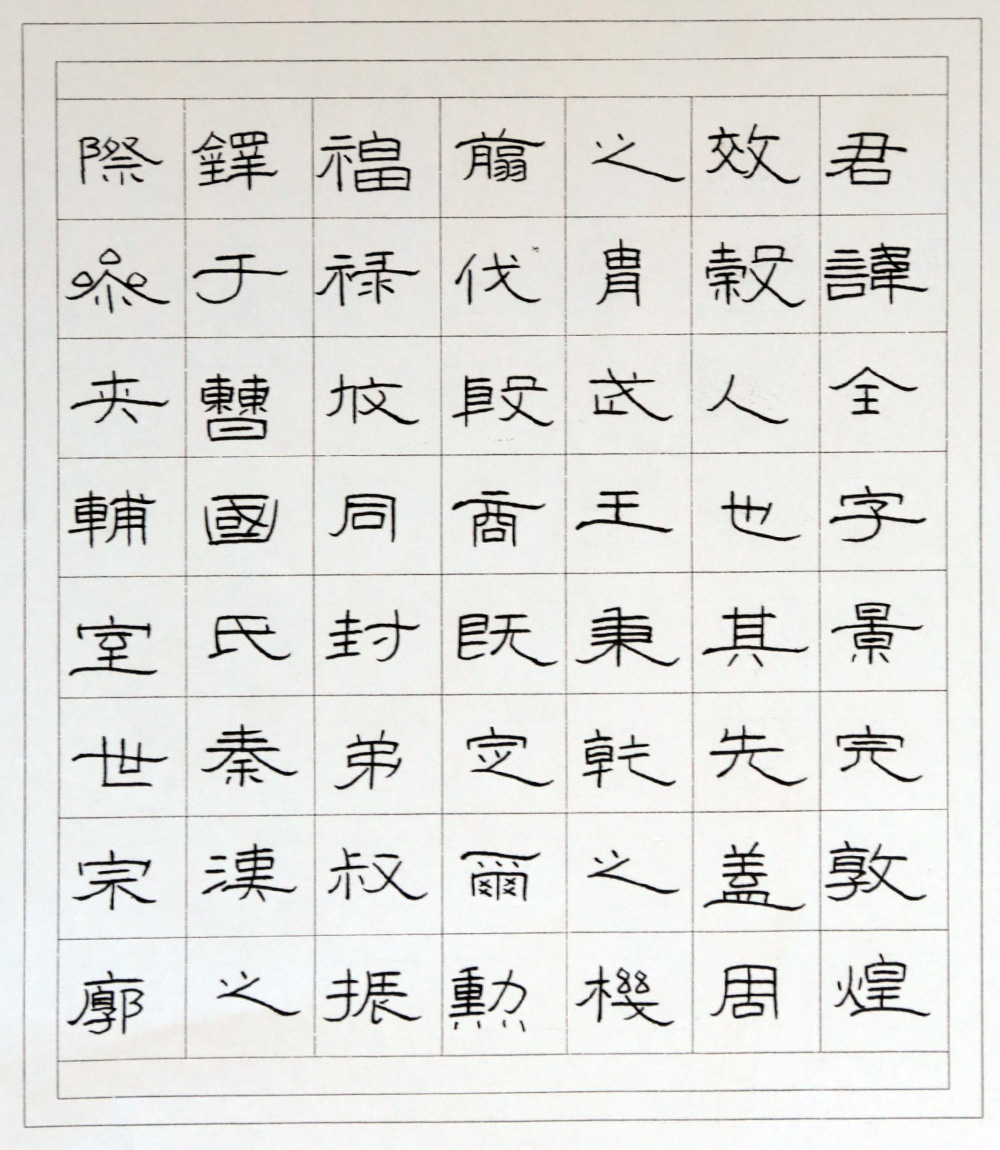 君諱全字景完敦煌
效穀人也其先盖周
之胄武王秉乾之機
翦伐殷商既定爾勲
福禄攸同封弟叔振
鐸于曹國氏秦漢之
際參夾輔室世宗廓